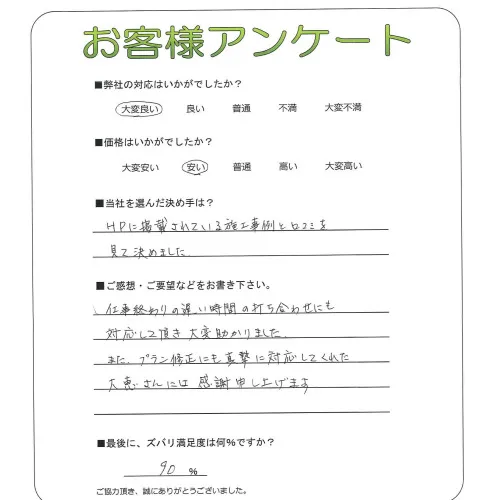 お客様アンケート
■弊社の対応はいかがでしたか?
大変良い 良い 普通 不満 大変不満
■価格はいかがでしたか?
大変安い 安い 普通 高い 大変高い
■当社を選んだ決め手は?
HPに掲載されている施工事例と口コミを
見て決めました.
■ご感想・ご要望などをお書き下さい。
仕事終わりの遅い時間の打ち合わせにも
対応して頂き大変助かりました.
また、プラン修正にも真摯に対応してくれた
大恵さんには感謝申し上げます
■最後に、ズバリ満足度は何%ですか?
90 %
ご協力頂き、誠にありがとうございました。